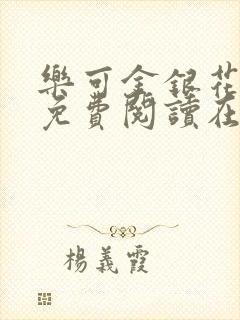 樂可金銀花
免費閱讀在
楊義霞